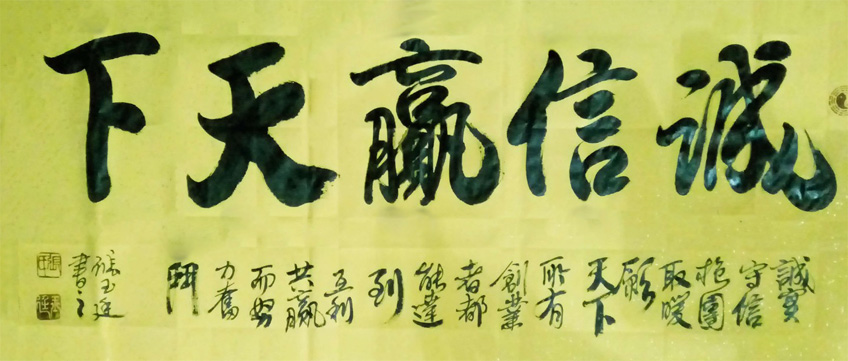 誠信贏天下
誠實
守信
抱團
取暖
願
天下
所有
創業
者都
能達
到
互利
共贏
而努
力奮
鬥
張玉廷
書之